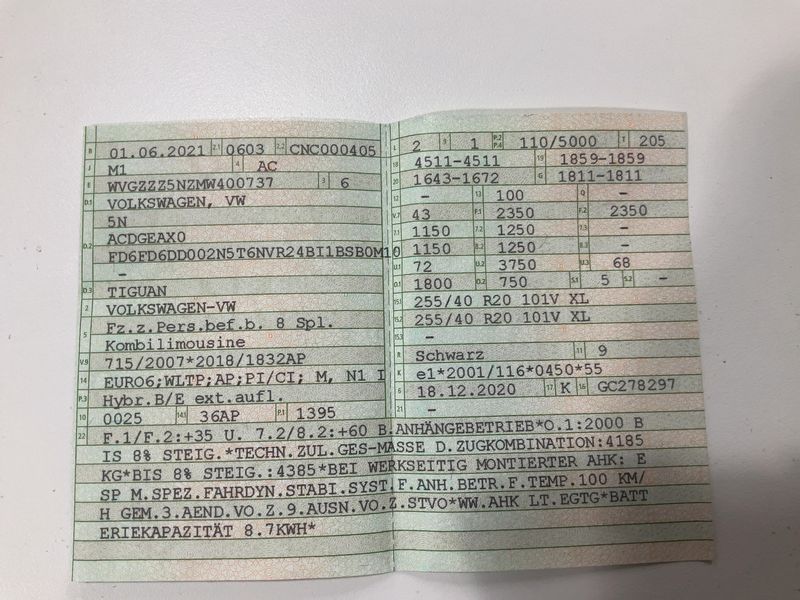 B 01.06.2021 2.1 0603 2.2 CNC000405
J M1 4 AC
E WVGZZZ5NZMW400737 3 6
D.1 VOLKSWAGEN, VW
5N
D.2 ACDGEAX0
FD6FD6DD002N5T6NVR24BI1BSB0M10
–
D.3 TIGUAN
2 VOLKSWAGEN-VW
5 Fz.z.Pers.bef.b. 8 Spl.
Kombilimousine
V.9 715/2007*2018/1832AP
14 EURO6;WLTP;AP;PI/CI; M, N1 I
P.3 Hybr.B/E ext.aufl.
10 0025 14.1 36AP P.1 1395
L 2 9 1 P.2 P.4 110/5000 T 205
18 4511-4511 19 1859-1859
20 1643-1672 G 1811-1811
12 – 13 100 Q –
V.7 43 F.1 2350 F.2 2350
7.1 1150 7.2 1250 7.3 –
8.1 1150 8.2 1250 8.3 –
U.1 72 U.2 3750 U.3 68
O.1 1800 O.2 750 S.1 5 S.2 –
15.1 255/40 R20 101V XL
15.2 255/40 R20 101V XL
15.3 –
R Schwarz 11 9
K e1*2001/116*0450*55
6 18.12.2020 17 K 16 GC278297
21 –
22 F.1/F.2:+35 U. 7.2/8.2:+60 B.ANHÄNGEBETRIEB*O.1:2000 B
IS 8% STEIG.*TECHN.ZUL.GES-MASSE D.ZUGKOMBINATION:4185
KG*BIS 8% STEIG.:4385*BEI WERKSEITIG MONTIERTER AHK: E
SP M.SPEZ.FAHRDYN.STABI.SYST.F.ANH.BETR.F.TEMP.100 KM/
H GEM.3.AEND.VO.Z.9.AUSN.VO.Z.STVO*WW.AHK LT.EGTG*BATT
ERIEKAPAZITÄT 8.7KWH*